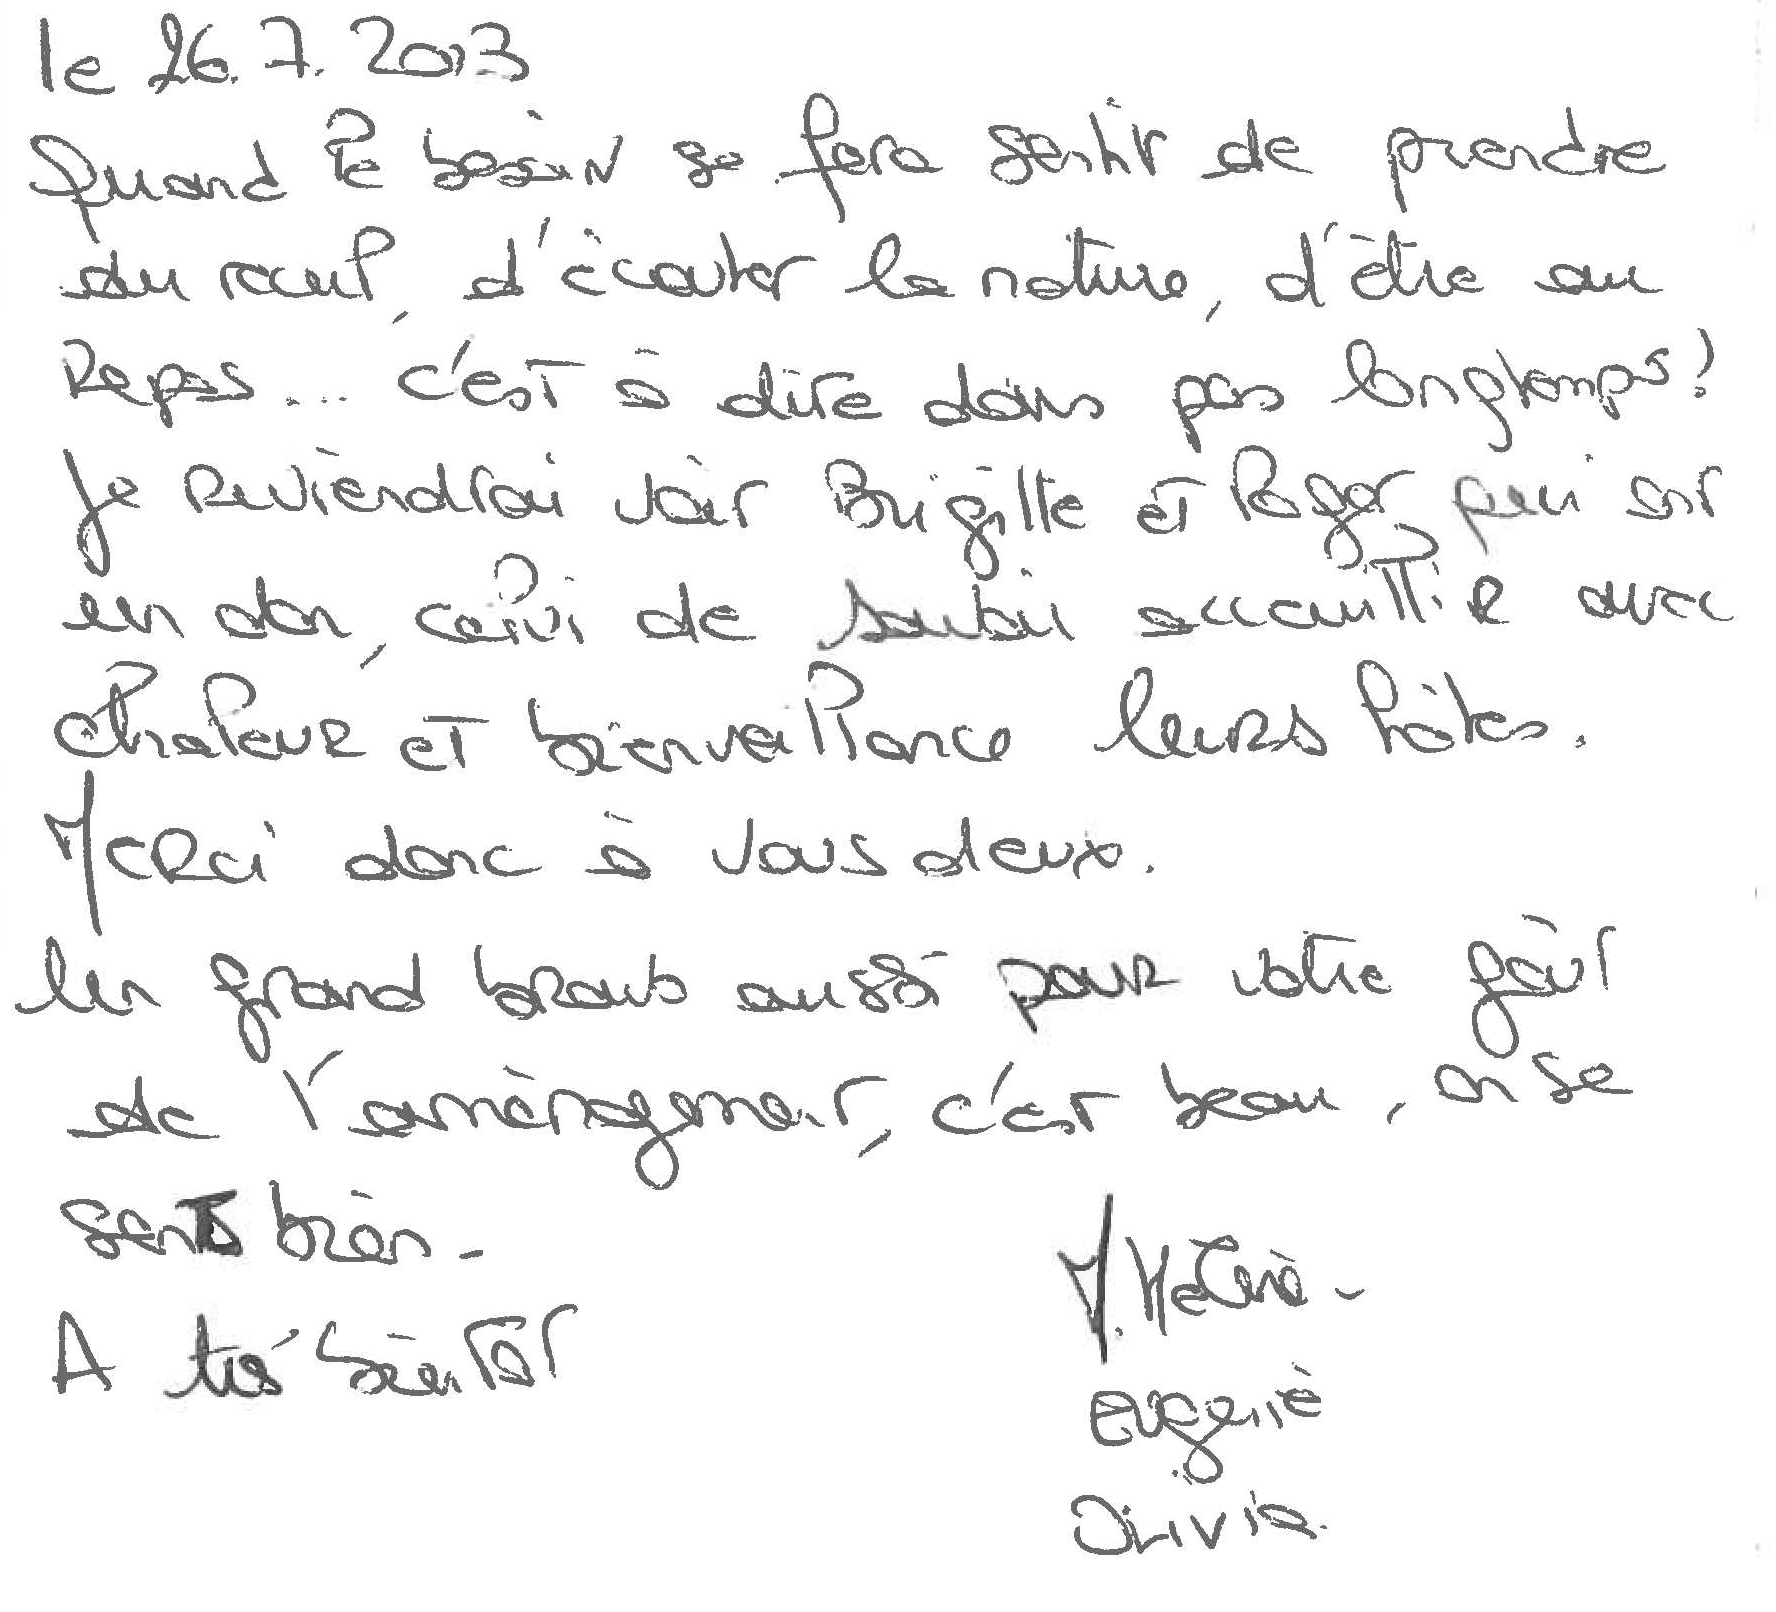 le 26.7.2013
Quand le besoin se fera sentir de prendre
du recul, d'écouter la nature, d'être au
Repos... c'est à dire dans pas longtemps!
Je Reviendrai voir Brigitte et Roger qui ont
un don, celui de savoir accueillir avec
chaleur et bienveillance leurs hôtes.
Merci donc à vous deux.
Un grand bravo aussi pour votre goût
de l'aménagement, c'est beau, on se
sent bien-
A très bientôt
Eugenie
Olivia.